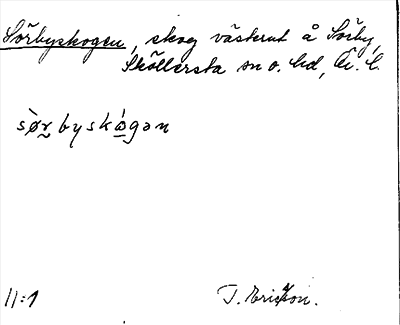 Sörbyskogen, skog västerut å Sörby,
Sköllersta sn o. hd, Ör. l.
sø̀rbyskó̱gən
11:1 T. Ericsson.